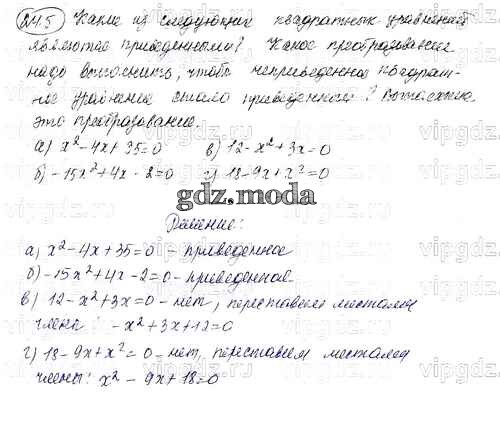 24.5 Какие из следующих квадратных уравнений
являются приведенными? Какое преобразование
надо выполнить, чтобы неприведенное квадрат-
ное уравнение стало приведенным? Выполните
это преобразование.
а) x²-4x+35=0 в) 12-x²+3x=0
б) -15x²+4x-2=0 г) 18-9x+x²=0
gdz.moda
Решение:
а) x²-4x+35=0 - приведенное
б) -15x²+4x-2=0 - приведенное.
в) 12-x²+3x=0 - нет, переставим местами
члены: -x²+3x+12=0
г) 18-9x+x²=0 - нет, переставим местами
члены: x²-9x+18=0